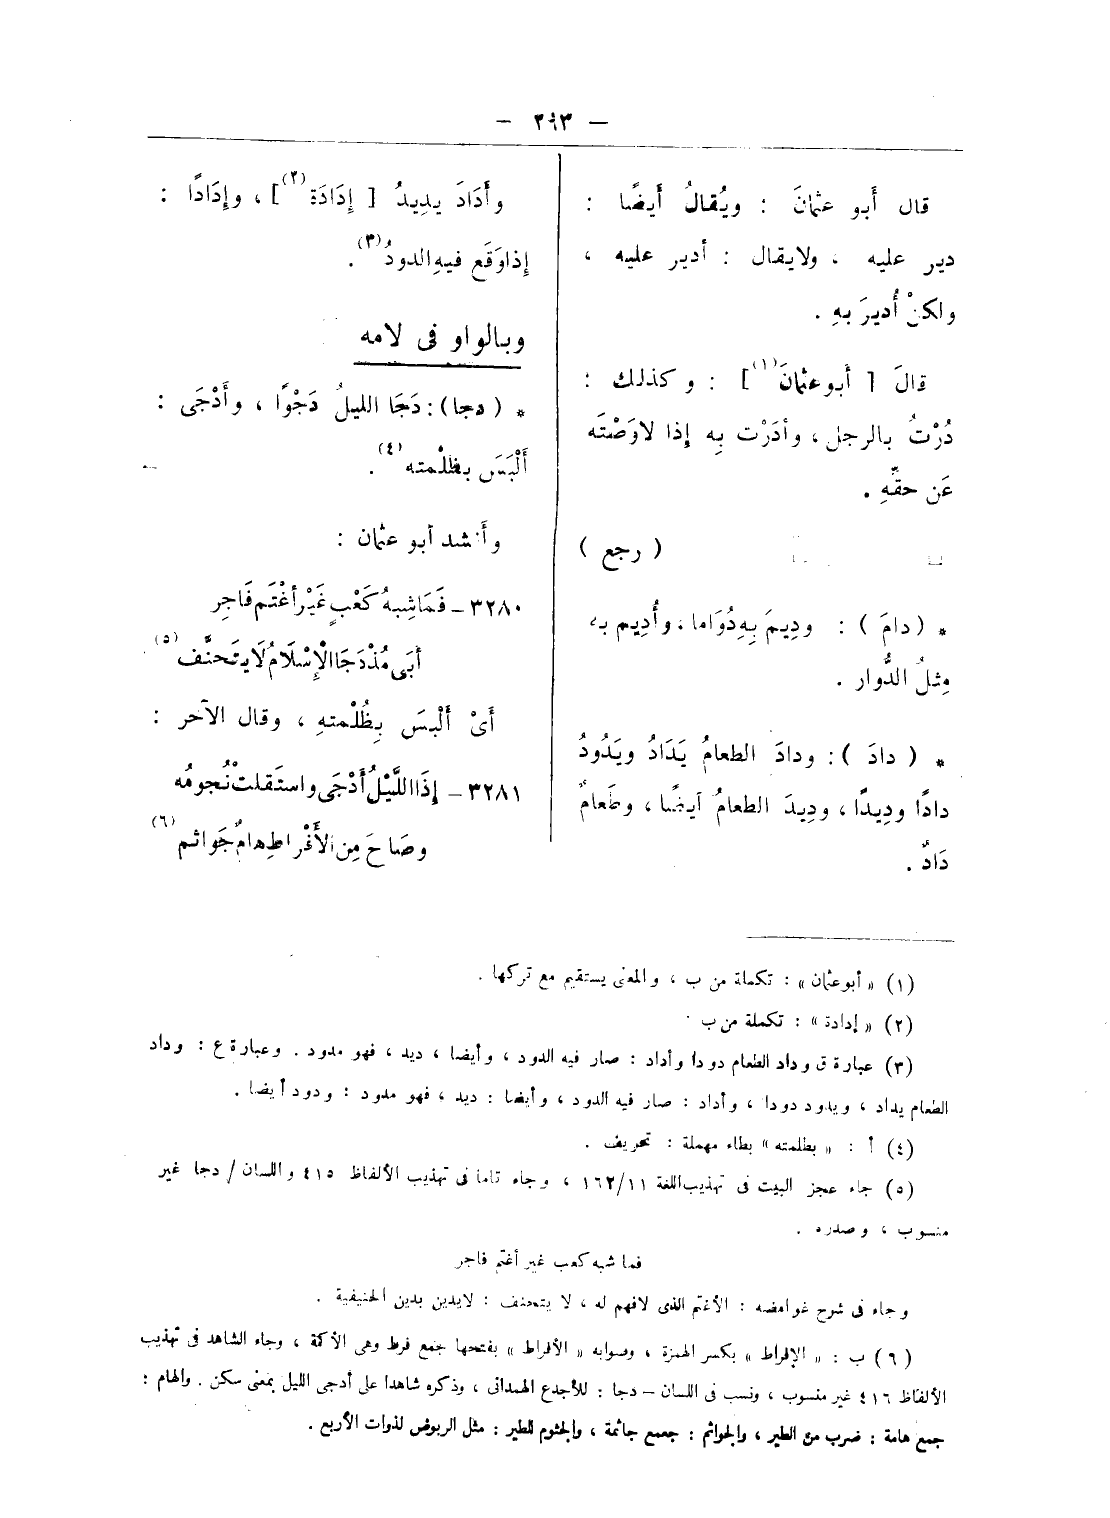 — ٢٩٣ —
قال أَبو عثمانَ : ويُقالُ أَيضًا :
دير عليه ، ولايقال : أدير عليه ،
ولكنْ أُديرَ بهِ .
قالَ [ أبوعثمانَ(١) ] : وكذلك :
دُرْتُ بالرجل ، وأدَرْت بِه إذا لاوَصْتَه
عَن حقِّهِ .
( رجع )
* ( دامَ ) : ودِيمَ بِهِ دُوَاما ، وأُدِيم به
مِثلُ الدُّوار .
* ( دادَ ) : ودادَ الطعامُ يَدَادُ ويَدُودُ
دادًا ودِيدًا ، ودِيدَ الطعامُ أيضًا ، وطَعامٌ
دَادٌ .
وأَدَادَ يدِيدُ [ إدَادَة(٢) ] ، وإدَادًا :
إذا وَقَع فيهِ الدودُ(٣) .
وبالواو فى لامه
* ( دجا ) : دَجَا الليلُ دَجْوًا ، وأَدْجَى :
أَلْبَسَ بظلْمته(٤) .
وأَنشد أبو عثمان :
٣٢٨٠ – فَمَا شِبهُ كَعْبٍ غَيْر أغْتَم فَاجِر
أبَى مُذْ دَجَا الإِسْلَامُ لَا يتَحنَّف(٥)
أىْ أَلْبسَ بِظُلْمتهِ ، وقال الآخر :
٣٢٨١ – إذَا اللَّيْلُ أَدْجَى واستَقلتْ نُجومُه
وصَاحَ مِن الأَفْراطِ هامٌ جَواثم(٦)
(١) « أبو عثمان » : تكملة من ب ، والمعنى يستقيم مع تركها .
(٢) « إدادة » : تكملة من ب .
(٣) عبارة ق وداد الطعام دودا وأداد : صار فيه الدود ، وأيضا ، ديد ، فهو مدود . وعبارة ع : وداد
الطعام يداد ، ويدود دودا ، وأداد : صار فيه الدود ، وأيضا : ديد ، فهو مدود : ودود أيضا .
(٤) أ : « بطلمته » بطاء مهملة : تحريف .
(٥) جاء عجز البيت فى تهذيب اللغة ١٦٢/١١ ، وجاء تاما فى تهذيب الألفاظ ٤١٥ واللسان / دجا غير
منسوب ، وصدره .
فما شبه كعب غير أغتم فاجر
وجاء فى شرح غوامضه : الأغتم الذى لافهم له ، لا يتحنف : لايدين بدين الحنيفية .
(٦) ب : « الإفراط » بكسر الهمزة ، وصوابه « الأفراط » بفتحها جمع فرط وهى الأكمة ، وجاء الشاهد فى تهذيب
الألفاظ ٤١٦ غير منسوب ، ونسب فى اللسان – دجا : للأجدع الهمدانى ، وذكره شاهدا على أدجى الليل بمعنى سكن . والهام :
جمع هامة : ضرب من الطير ، والجواثم : جمع جاثمة ، والجثوم للطير : مثل الربوض لذوات الأربع .